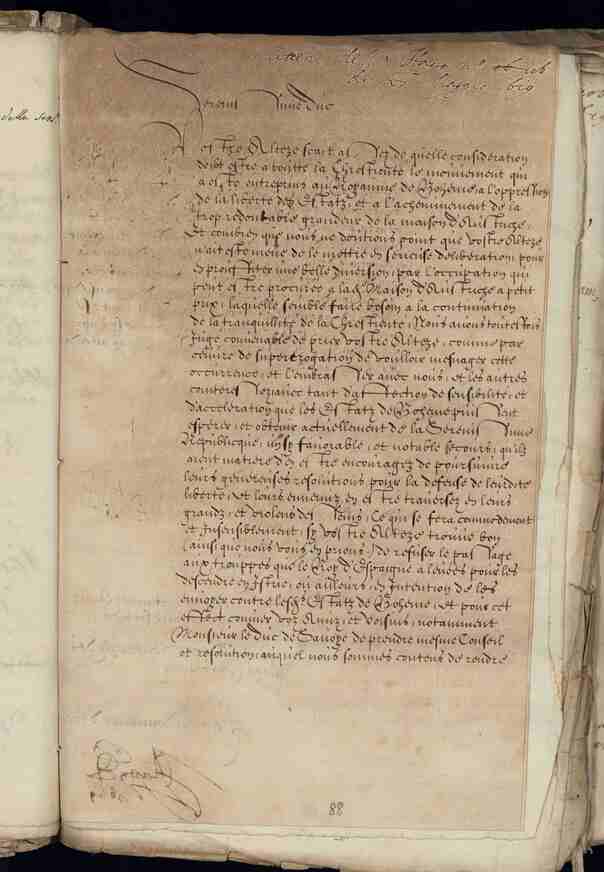 Serenissime Duc
Vostre Alteze scait assez de quelle consideration
doibt estre a toutte la Chrestienté le mouvement qui
a esté entreprins au Royaume de Boheme, a l'oppression
de la liberté des Estatz, et a l'acheminement de la
trop redoubtable grandeur de la maison d'Austriche,
Et combien que nous ne doutions point que vostre Alteze
n'ait esté meue de le mettre en serieuse deliberation, pour
en proufiter une belle diversion, par l'occupation qui
peut estre procurée a lad. Maison d'Austriche a petit
prix, laquelle semble faire besoin a la continuation
de la tranquillité de la Chrestienté, Nous avons toutesfois
Jugé convenable de prier vostre Alteze, comme par
œuvre de supererogation de vouloir mesnager cette
occurrence, et l'embrasser avec nous, et les autres
interessez avec tant d'affection de sensibilité, et
d'acceleration que les Estatz de Boheme puissent
esperer, et obtenir actuellement de la Serenissime
Republicque, un sy favorable, et notable secours, qu'ilz
ayent matiere d'en estre encouragez de poursuivre
leurs genereuses resolutions pour la defense de leurdite
liberté, et leurs ennemiz en estre traversez en leurs
grandz, et violens desseins, Ce qui se fera commodement
et Insensiblement, sy vostre Alteze trouve bon
(ainsi que nous vous en prions) de refuser le passage
aux trouppes que le Roy d'Espaigne a levées pour les
descendre en Istrie, ou ailleurs, en Intention de les
envoyer contre lesd. Estatz de Boheme, et pour cet
effect convier voz Amiz et voisins, notamment
Monsieur le Duc de Savoye de prendre mesme Conseil
et resolution, auquel nous sommes contens de rendre
88